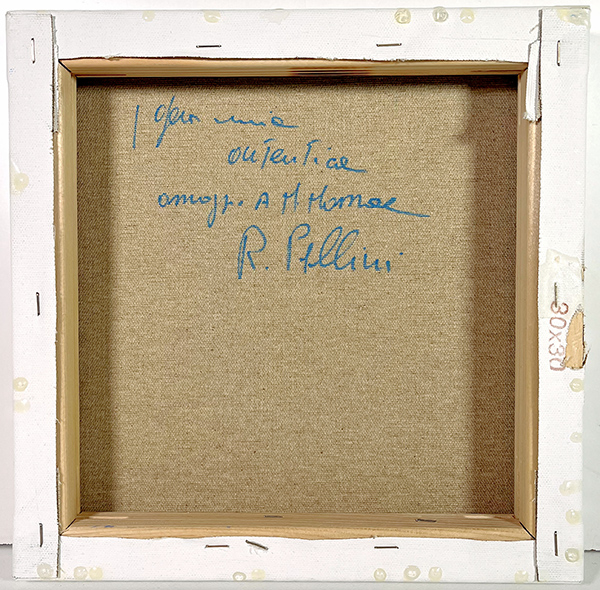 opera mia
autentica
omaggio A M Monroe
R. Pellini
30x30